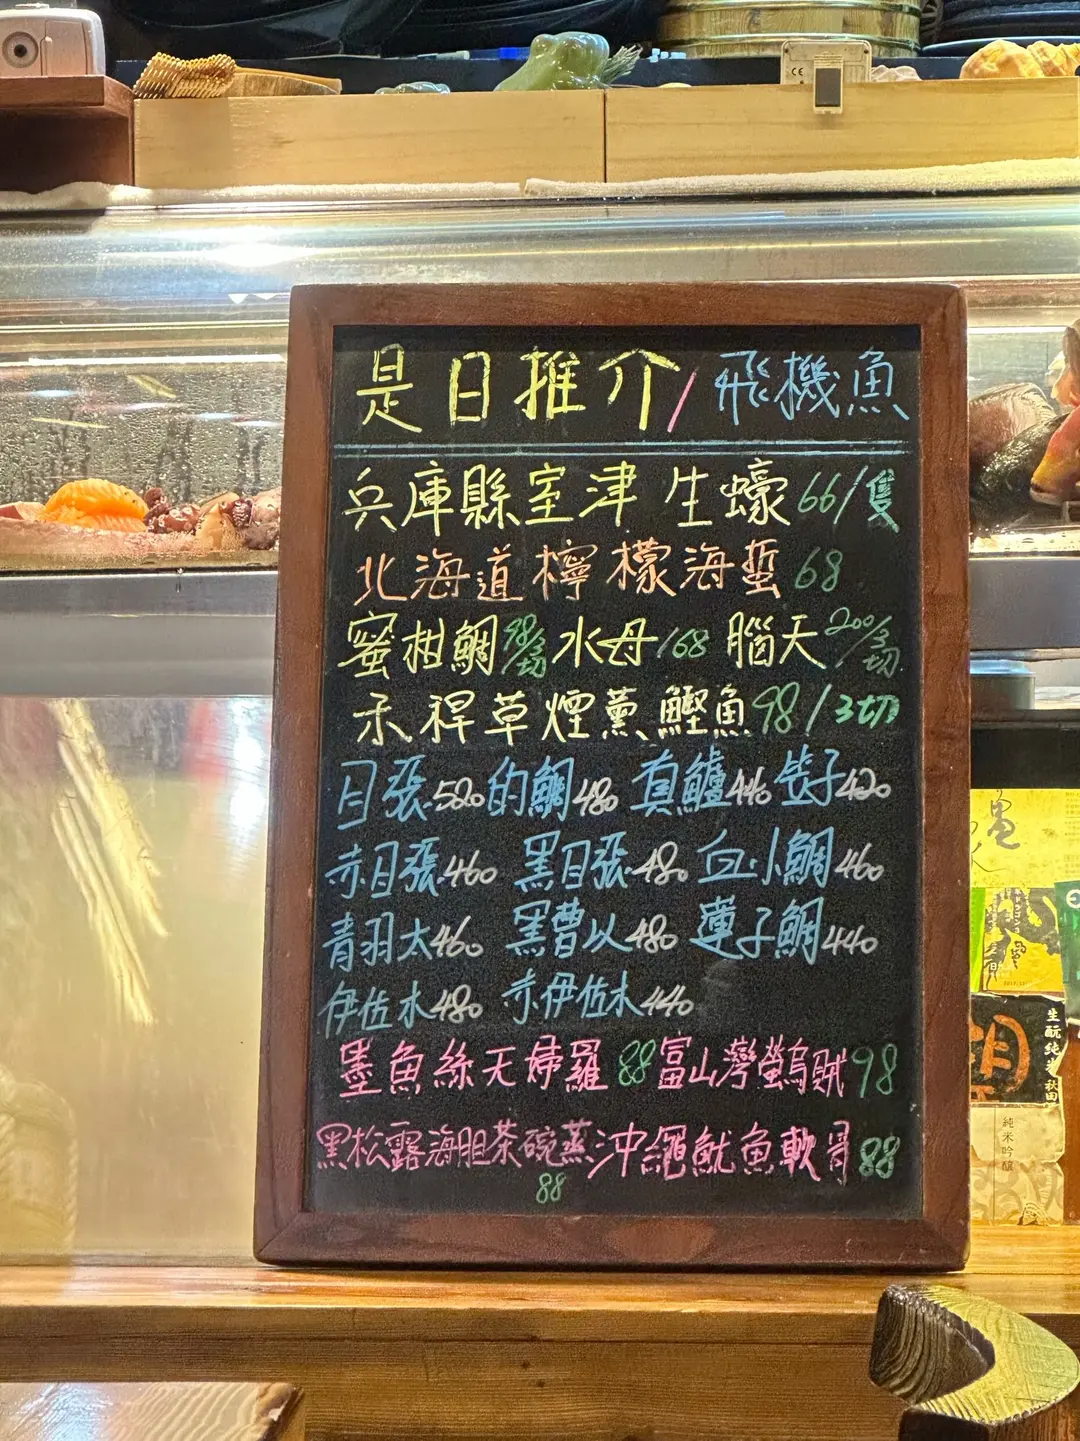 是日推介/飛機魚
兵庫縣室津 生蠔66/隻
北海道檸檬海蜇68
蜜柑鯛98/3切 水母168 腦天200/3切
禾稈草煙薰鰹魚98/3切
目張520 的鯛480 真鱸440 皆子420
赤目張460 黑目張480 血小鯛460
青羽太460 黑曹以480 蓮子鯛440
伊佐木480 赤伊佐木440
墨魚絲天婦羅88 富山灣螢烏賊98
黑松露海胆茶碗蒸/沖繩魷魚軟骨88
88
生酛純米 秋田
純米吟釀